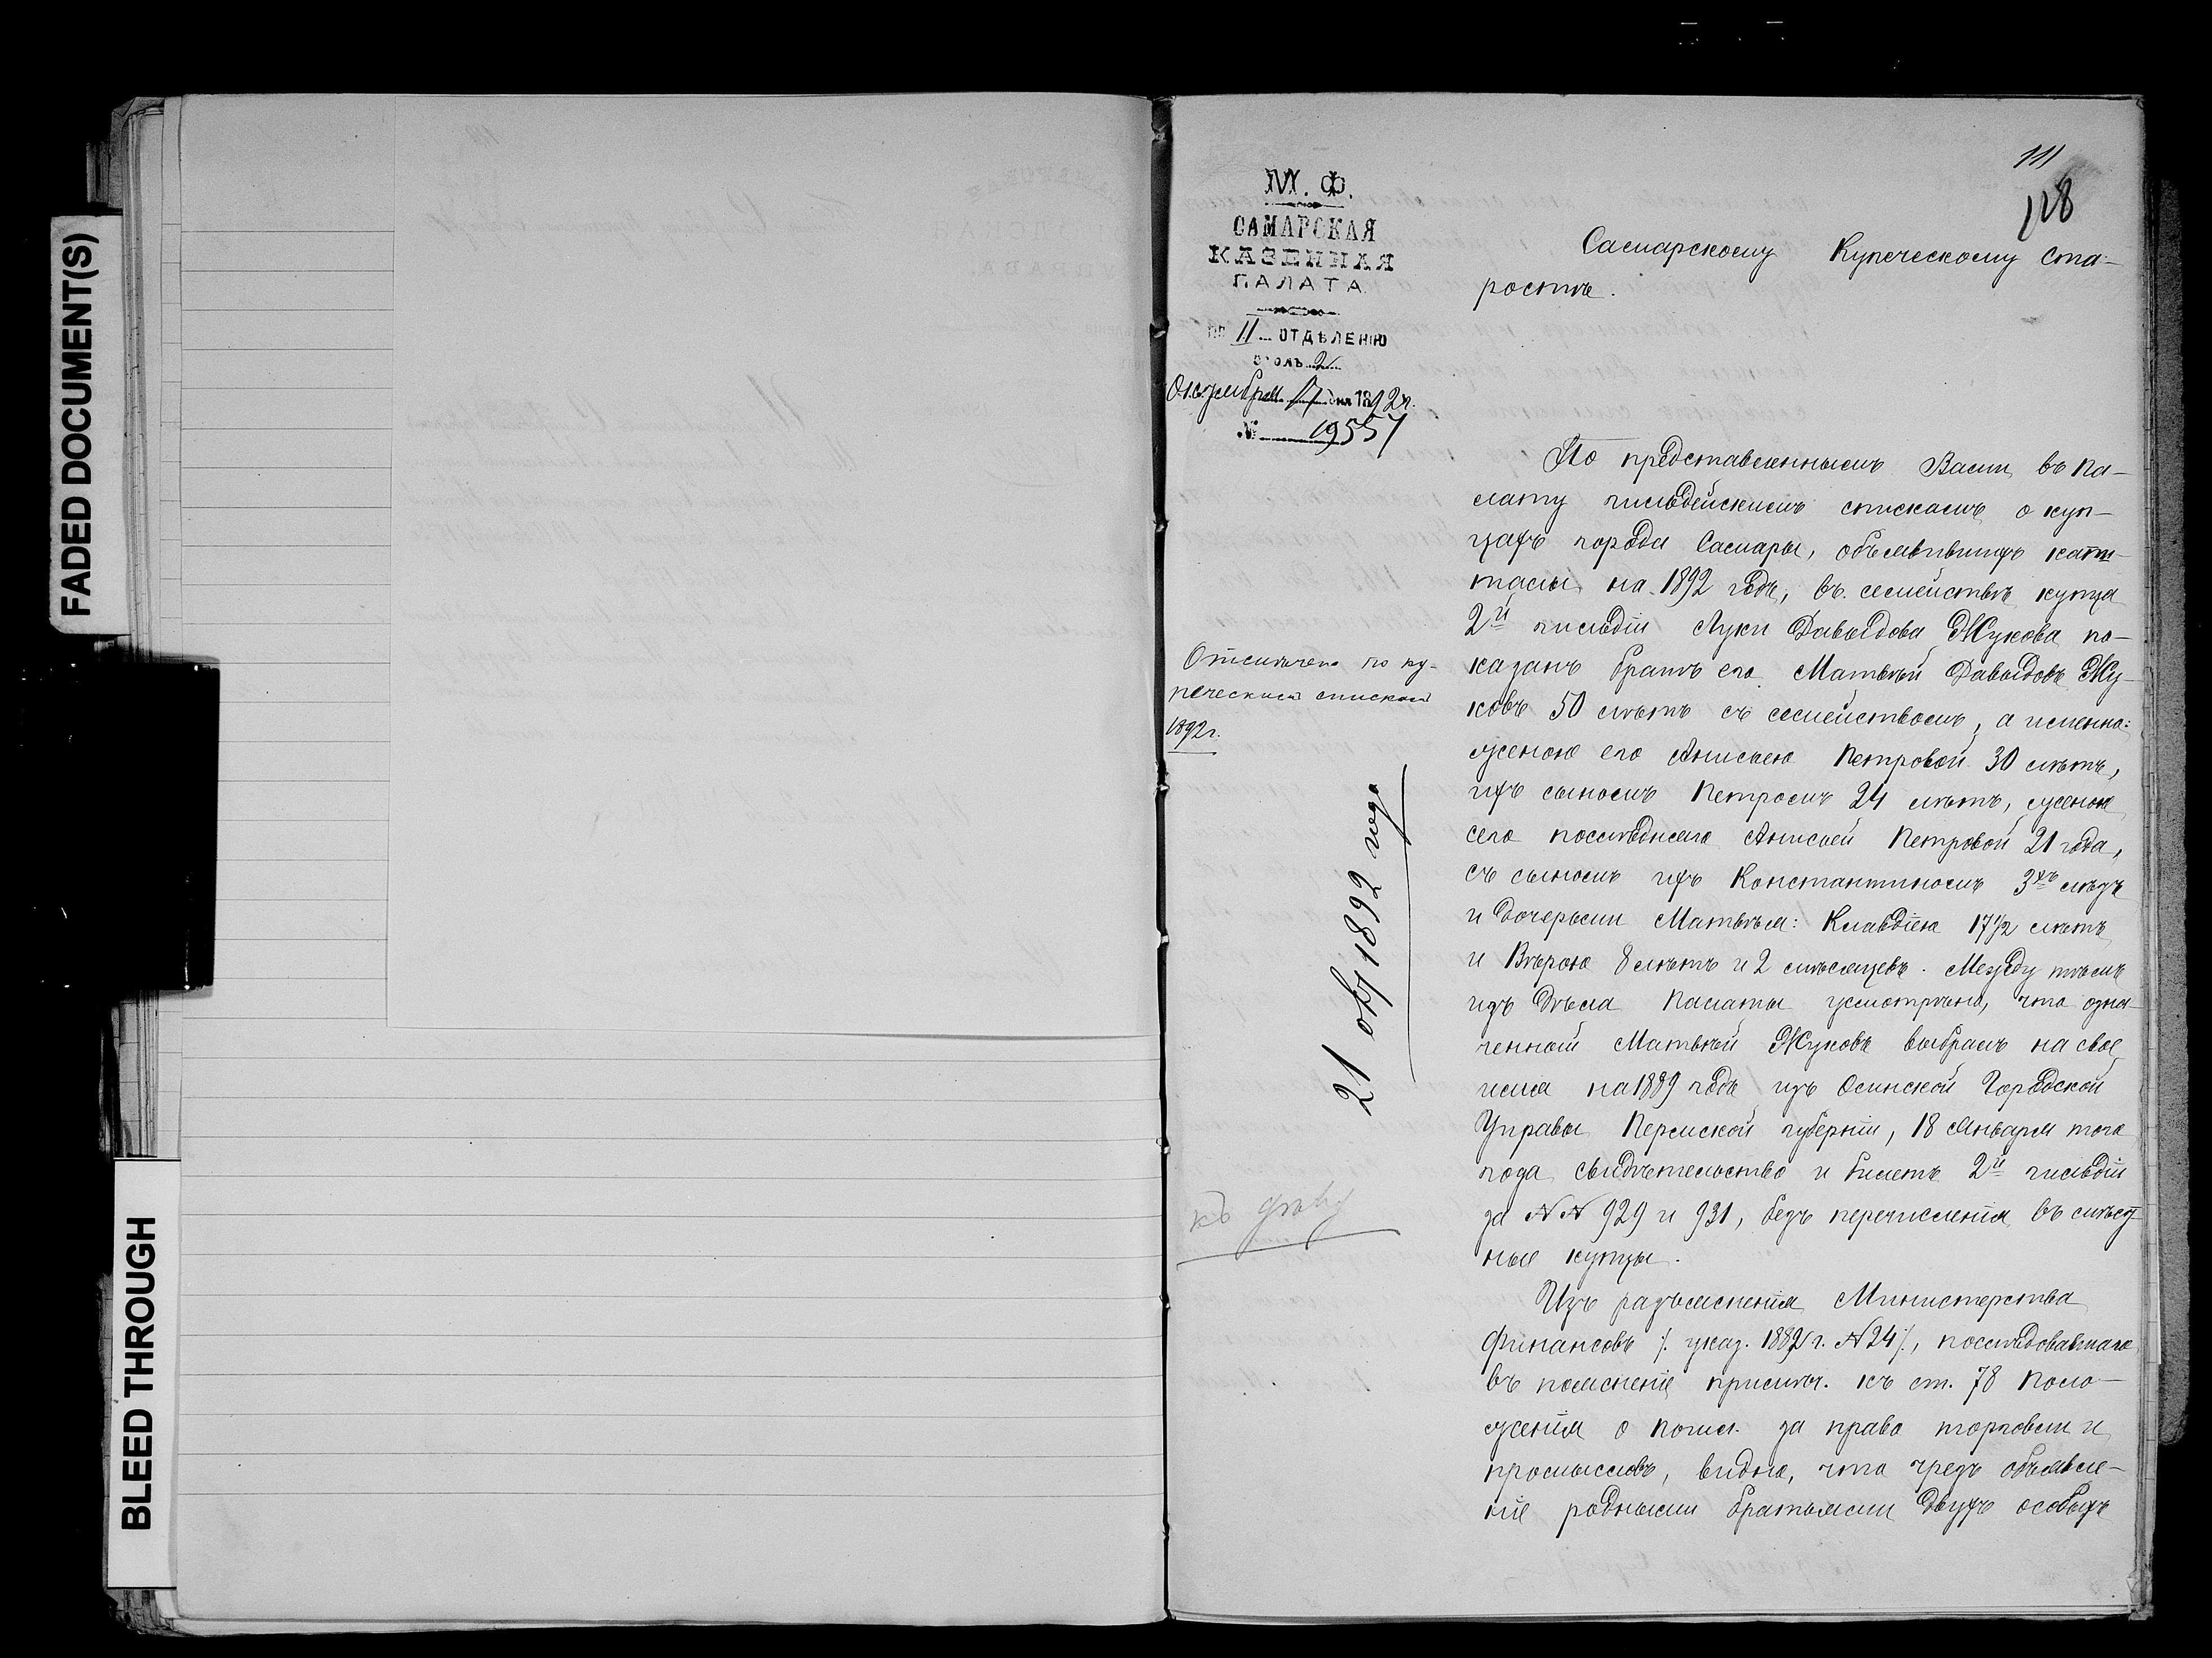 FADED DOCUMENT(S)
BLEED THROUGH
111
128
М. Ф.
САМАРСКАЯ
КАЗЕННАЯ
ПАЛАТА
ПО II ОТДѢЛЕНІЮ
Столъ 2
Октября 17 дня 1892 г.
№ 19557
Отмѣчено по ку-
печескимъ спискамъ
1892 г.
21 окт 1892 года
къ дѣлу
Самарскому Купеческому Ста-
ростѣ.
По представленнымъ Вами въ Па-
лату гильдейскимъ спискамъ о куп-
цахъ города Самары, объявившихъ капи-
талы на 1892 годъ, въ семействѣ купца
2й гильдіи Луки Давыдова Жукова по-
казанъ братъ его Матвѣй Давыдовъ Жу-
ковъ 50 лѣтъ съ семействомъ, а именно:
женою его Анисьею Петровой 30 лѣтъ,
ихъ сыномъ Петромъ 24 лѣтъ, женою
сего послѣдняго Анисьей Петровой 21 года,
съ сыномъ ихъ Константиномъ 3хъ лѣтъ
и дочерьми Матвѣя: Клавдіею 17½ лѣтъ
и Вѣрою 8 лѣтъ и 2 мѣсяцевъ. Между тѣмъ
изъ дѣла Палаты усмотрѣно, что озна-
ченный Матвѣй Жуковъ выбралъ на свое
имя на 1889 годъ изъ Осинской Городской
Управы Пермской губерніи, 18 Января того
года свидѣтельство и билетъ 2й гильдіи
за №№ 929 и 931, безъ перечисленія въ мѣст-
ные купцы.
Изъ разъясненія Министерства
Финансовъ /. указ. 1882 г. № 24 /., послѣдовавшаго
въ поясненіе примѣч. къ ст. 78 Поло-
женія о пошл. за право торговли и
промысловъ, видно, что чрезъ объявле-
ніе родными братьями двухъ особыхъ